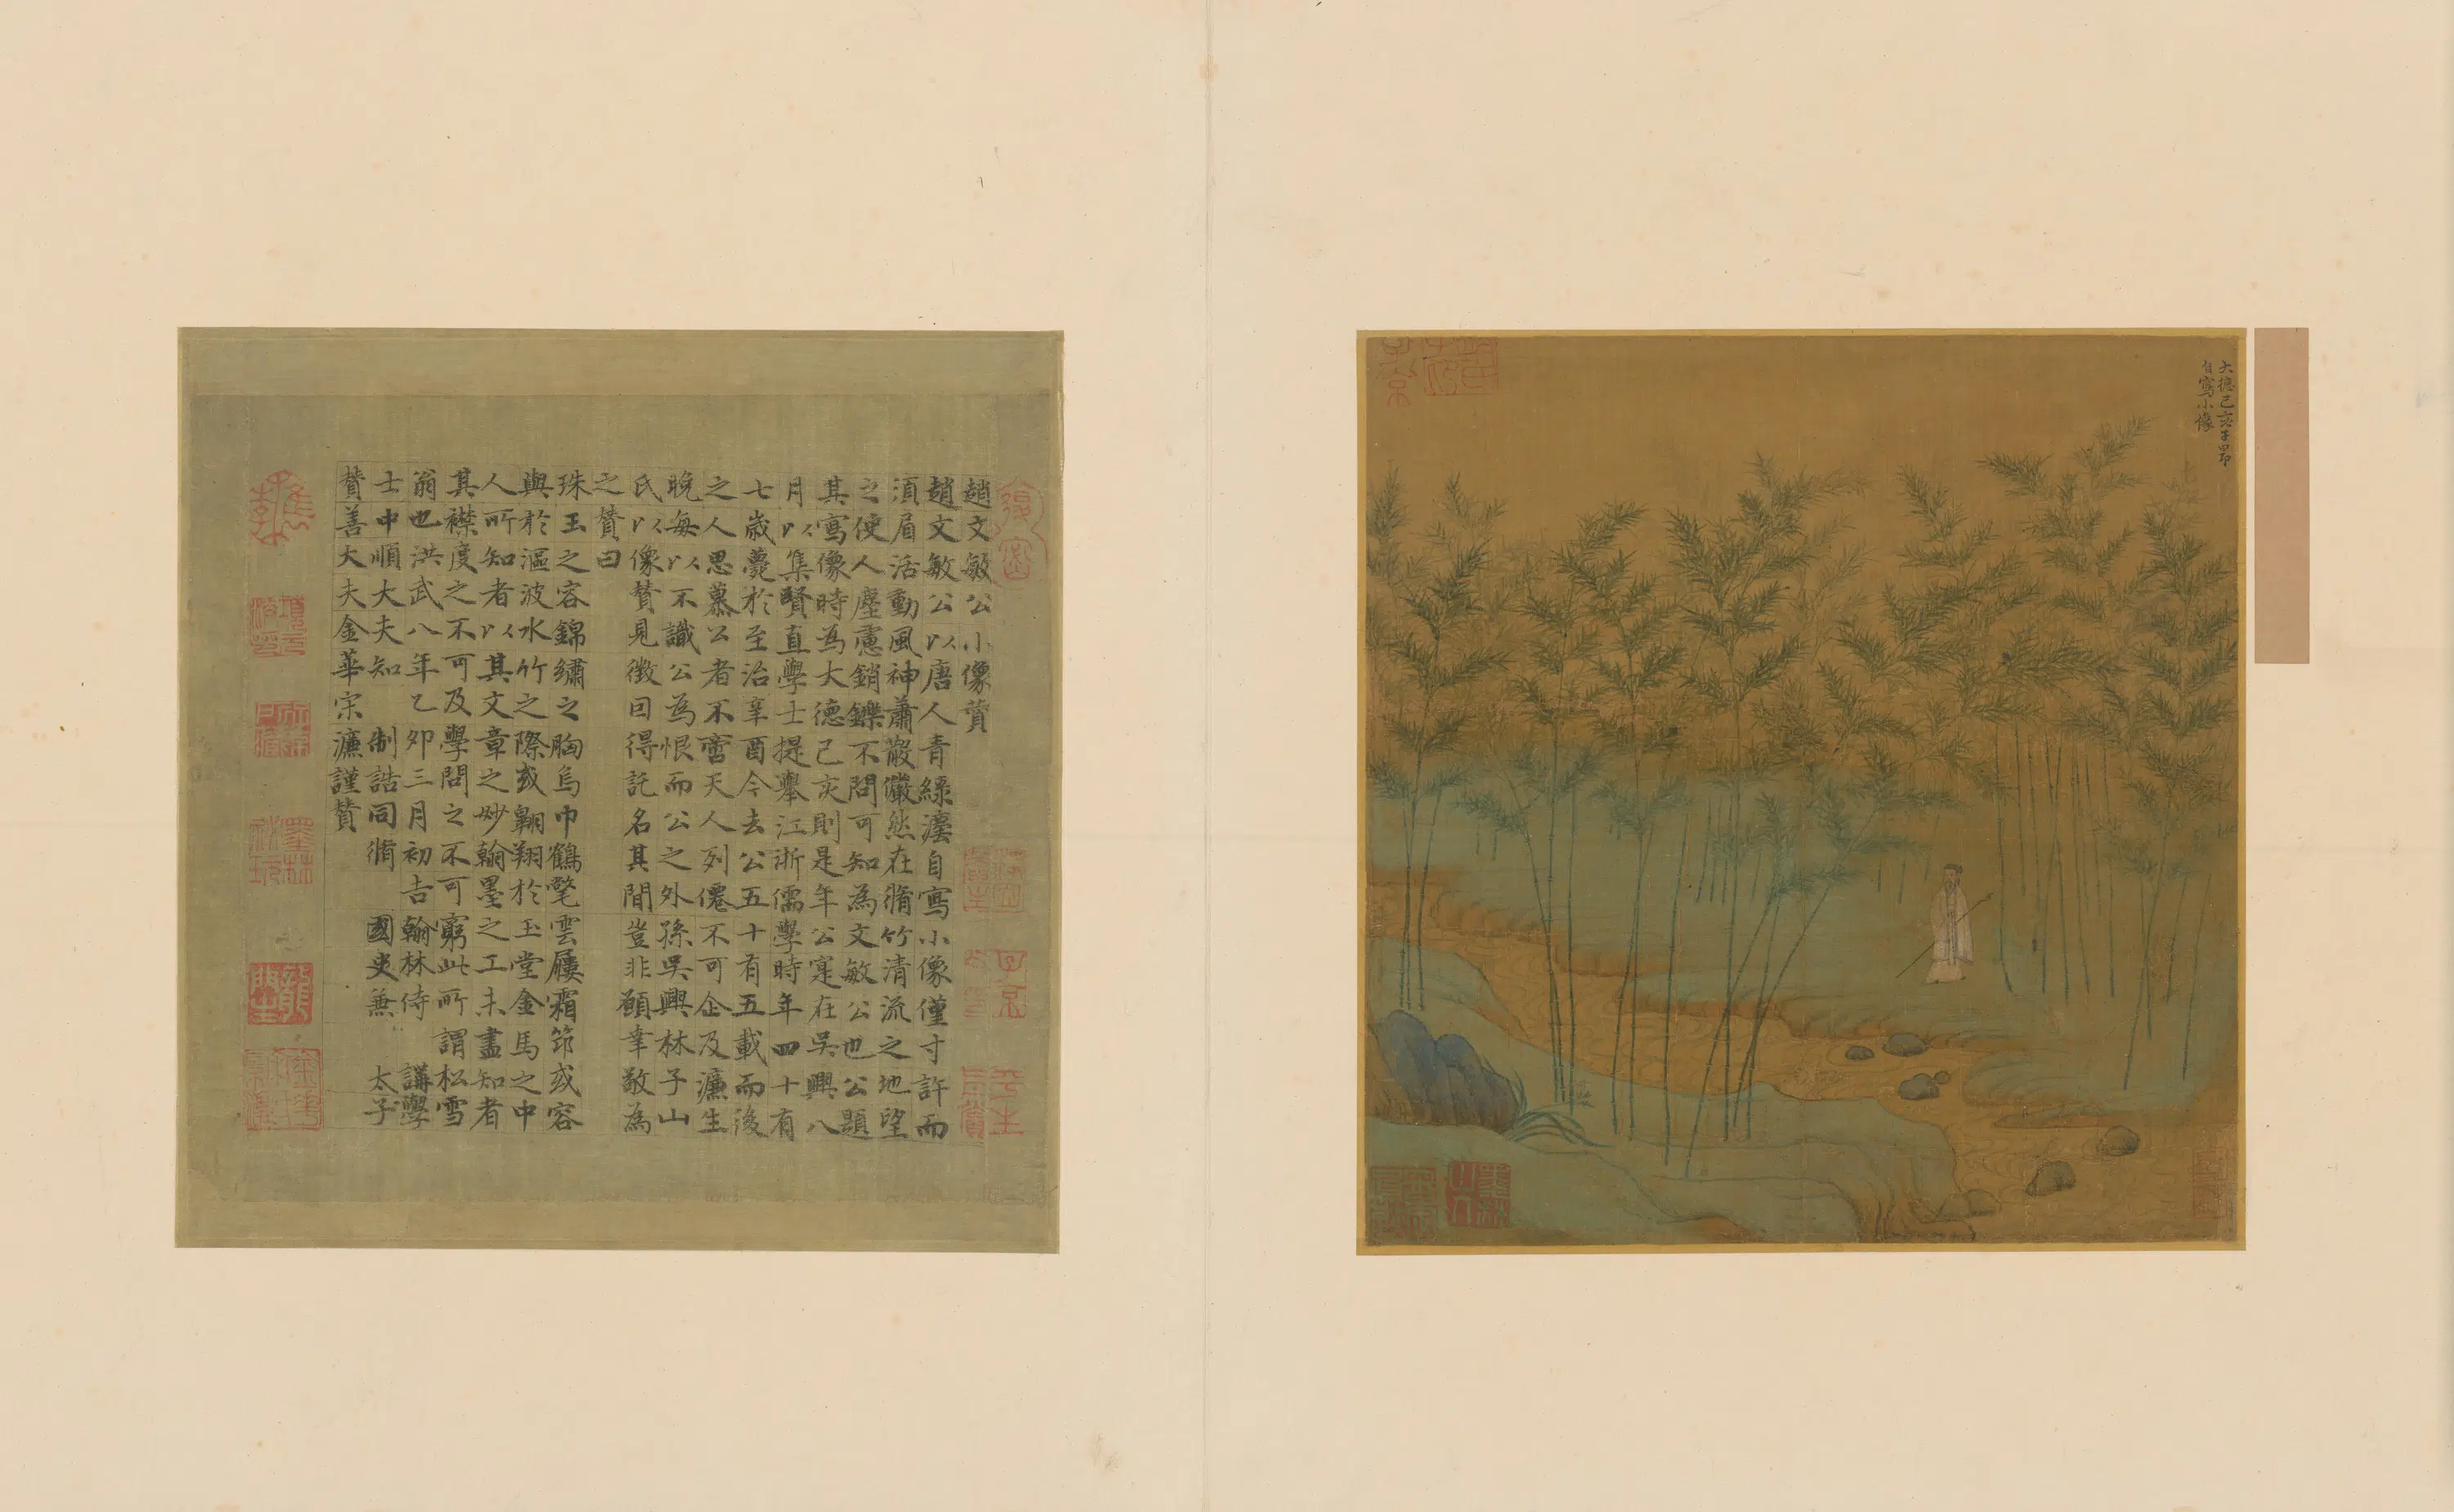 大德己亥子昂
自寫小像
墨林山人
趙文敏公小像贊
趙文敏公以唐人青綠灋自寫小像僅寸許而
須眉活動風神蕭散儼然在脩竹清流之地望
之使人塵慮銷鑠不問可知為文敏公也公題
其寫像時為大德己亥則是年公寔在吳興八
月以集賢直學士提舉江浙儒學時年四十有
七歲薨於至治辛酉今去公五十有五載而後
之人思慕公者不啻天人列僊不可企及濂生
晚每以不識公為恨而公之外孫吳興林子山
氏以像贊見徵回得託名其間豈非願幸敬為
之贊曰
珠玉之容錦繡之胸烏巾鶴氅雲屨霜筇或容
與於漚波水竹之際或翱翔於玉堂金馬之中
人所知者以其文章之妙翰墨之工未盡知者
其襟度之不可及學問之不可窮此所謂松雪
翁也洪武八年乙卯三月初吉翰林侍講學
士中順大夫知制誥同脩國史兼太子
贊善大夫金華宋濂謹贊
子京
平生真賞
項元汴印
墨林祕玩